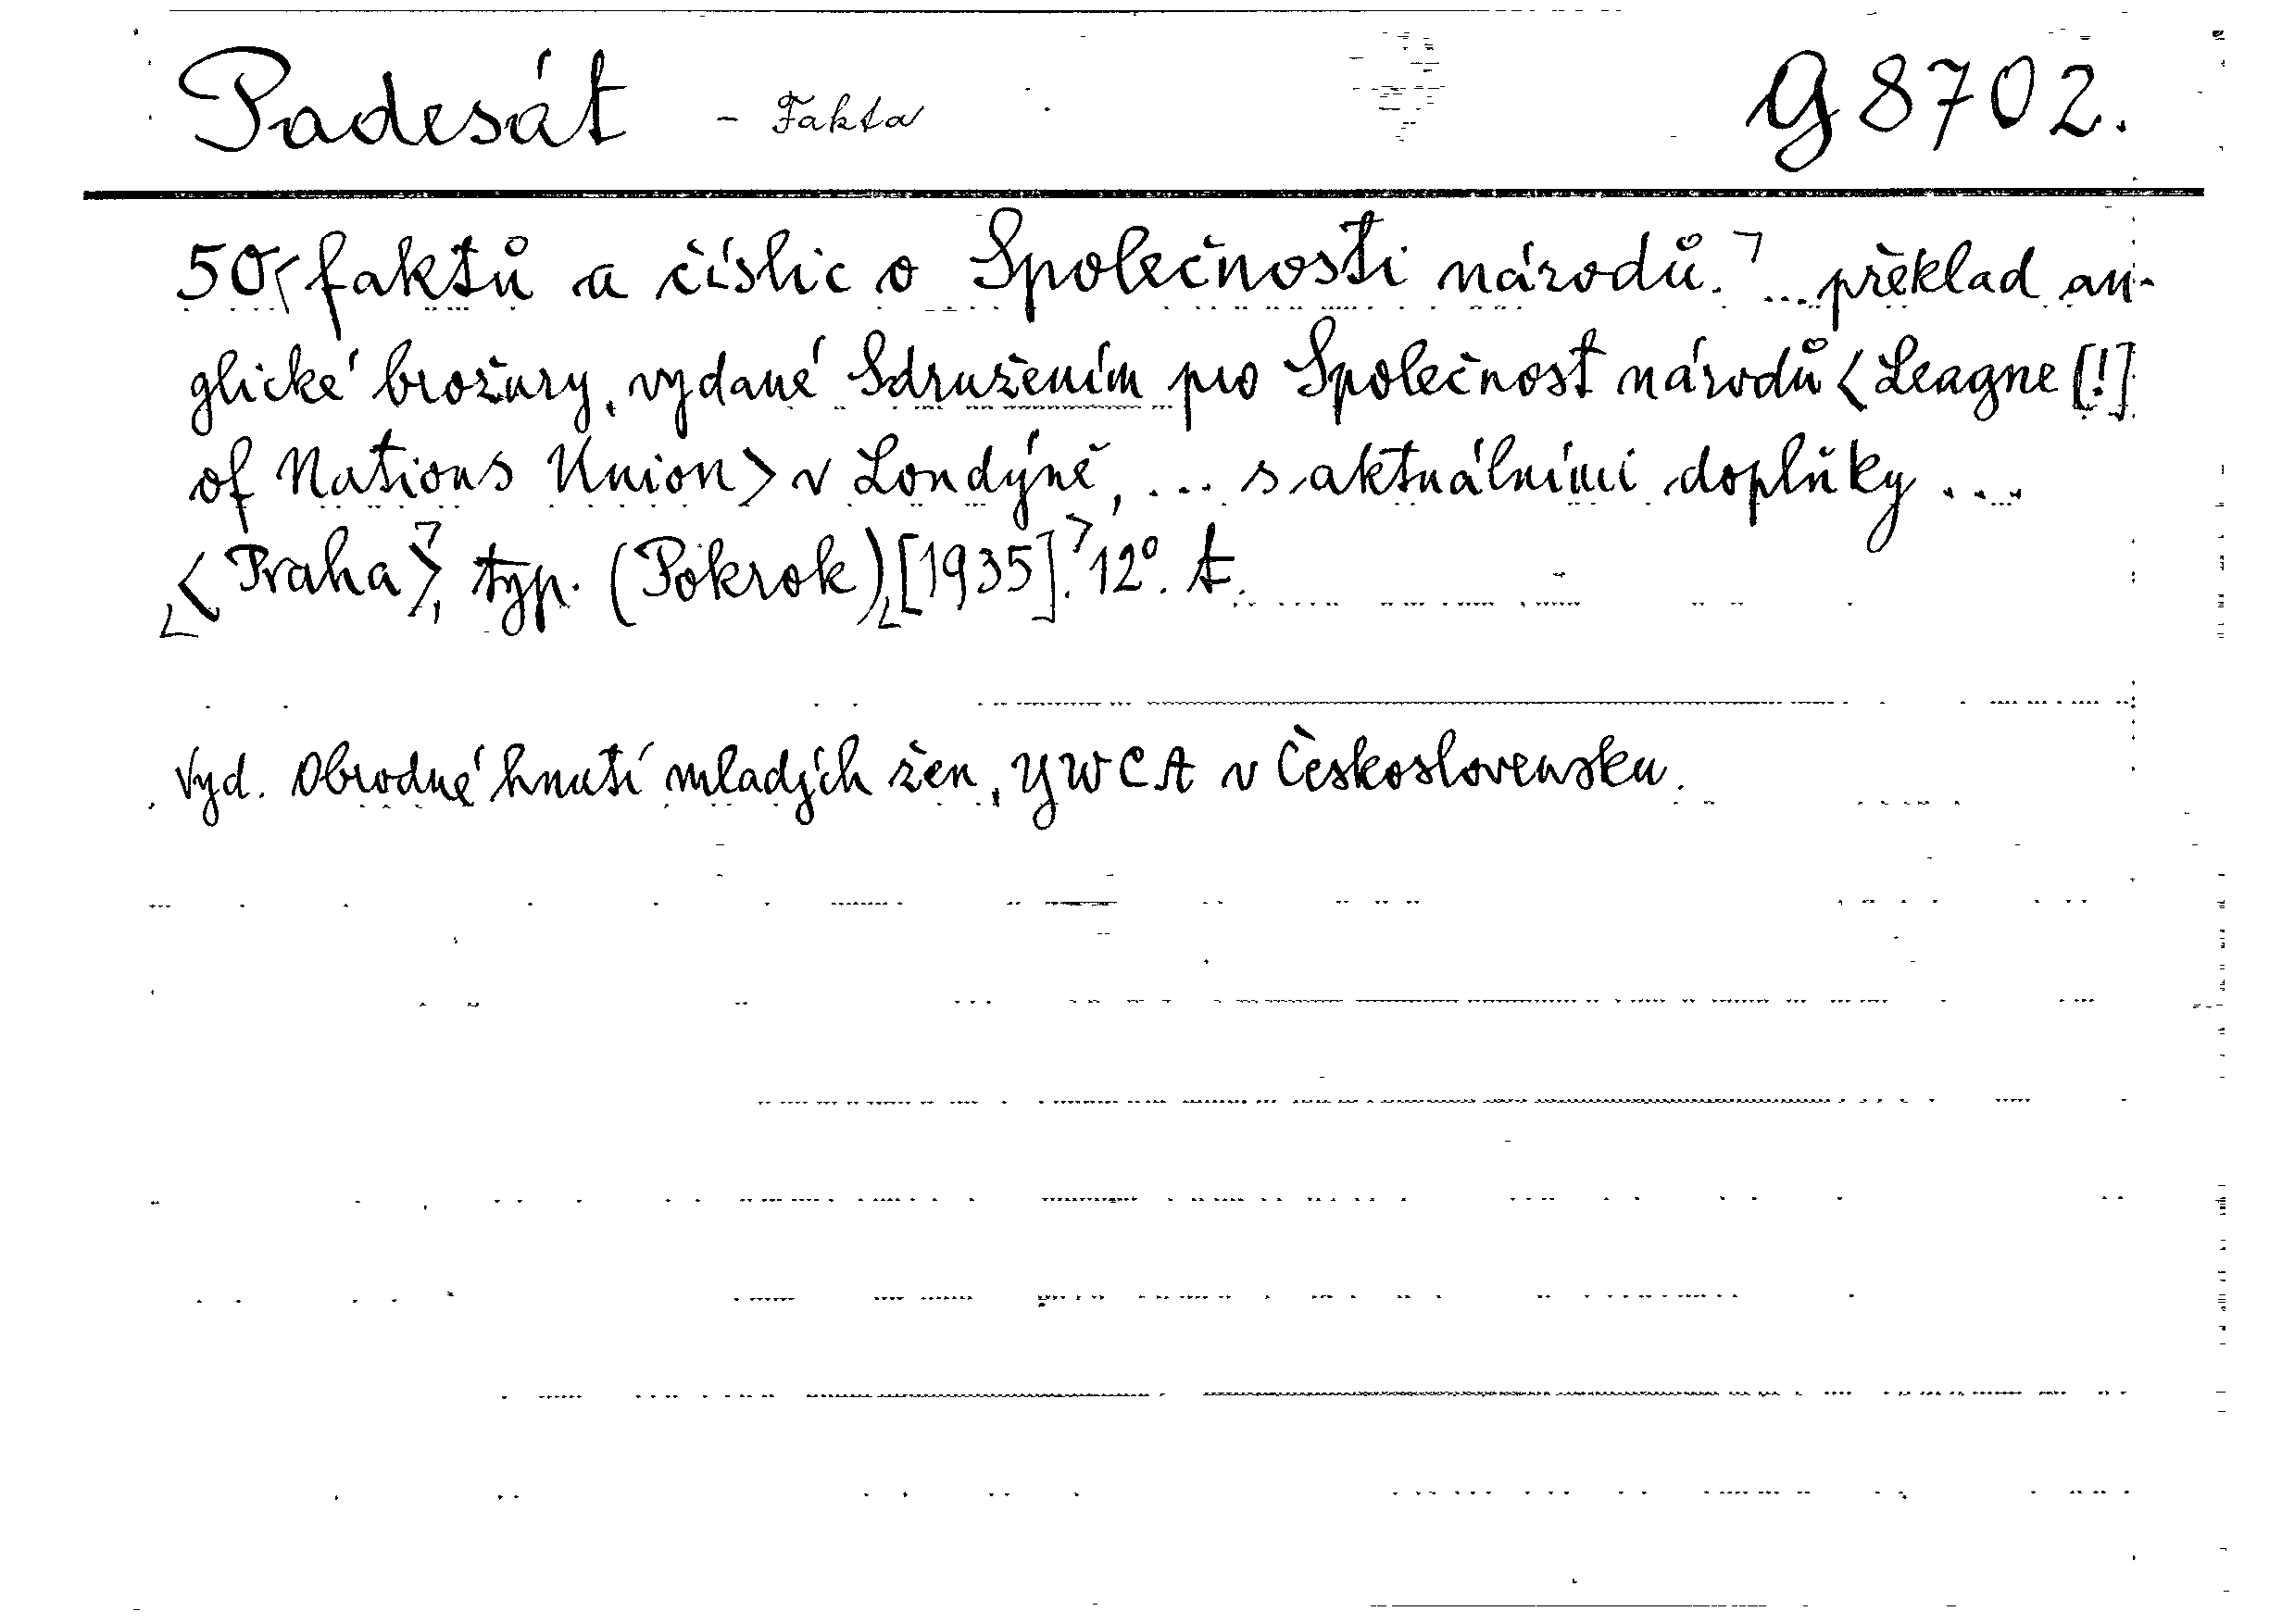 Padesát - Fakta G 8702.
50 faktů a číslic o Společnosti národů. ... překlad an-
glické brožury, vydané Sdružením pro Společnost národů <Leagne [!]
of Nations Union> v Londýně, ... s aktuálními doplňky ...
<Praha>, typ. (Pokrok), [1935]. 12°. A.
Vyd. Obrodné hnutí mladých žen, YWCA v Československu.